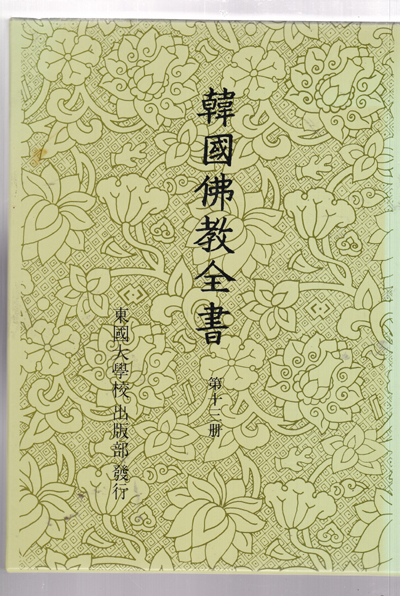 韓國佛教全書
第十三册
東國大學校出版部 發行